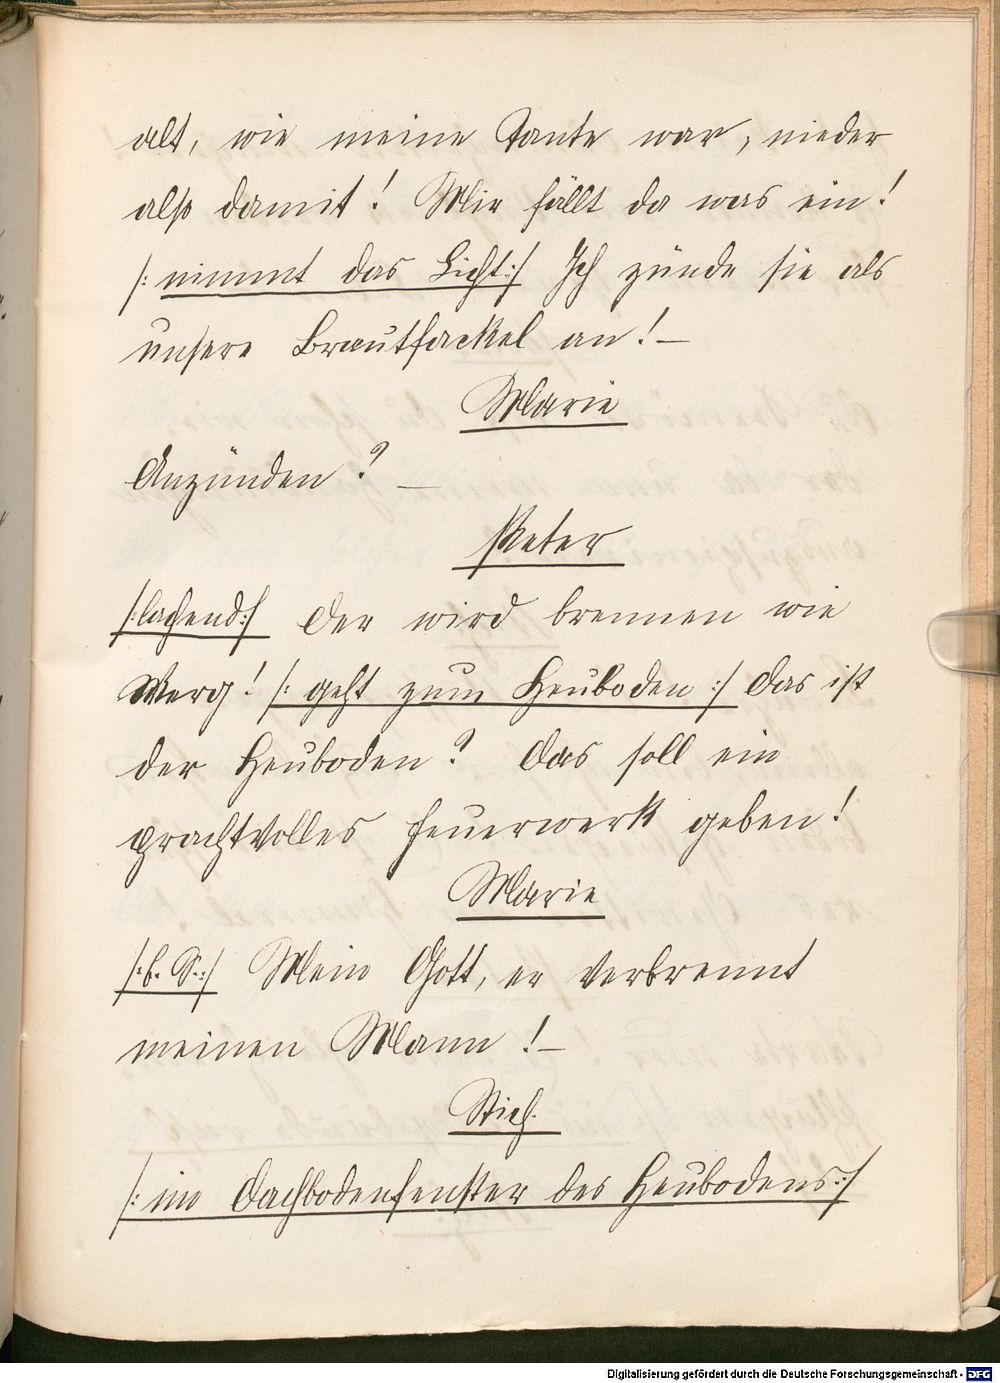 alt, wie meine Tante war, nieder
also damit! Mir fällt da was ein!
/: nimmt das Licht:/ Ich zünde sie als
unsere Brautfackel an! —
Marie
Anzünden? —
Peter
/:lachend:/ Der wird brennen wie
Werg! /: geht zum Heuboden :/ Das ist
der Heuboden? Das soll ein
prachtvolles Feuerwerk geben!
Marie
/:b. S.:/ Mein Gott, er verbrennt
meinen Mann! —
Stich.
/: im Dachbodenfenster des Heubodens:/
Digitalisierung gefördert durch die Deutsche Forschungsgemeinschaft - DFG